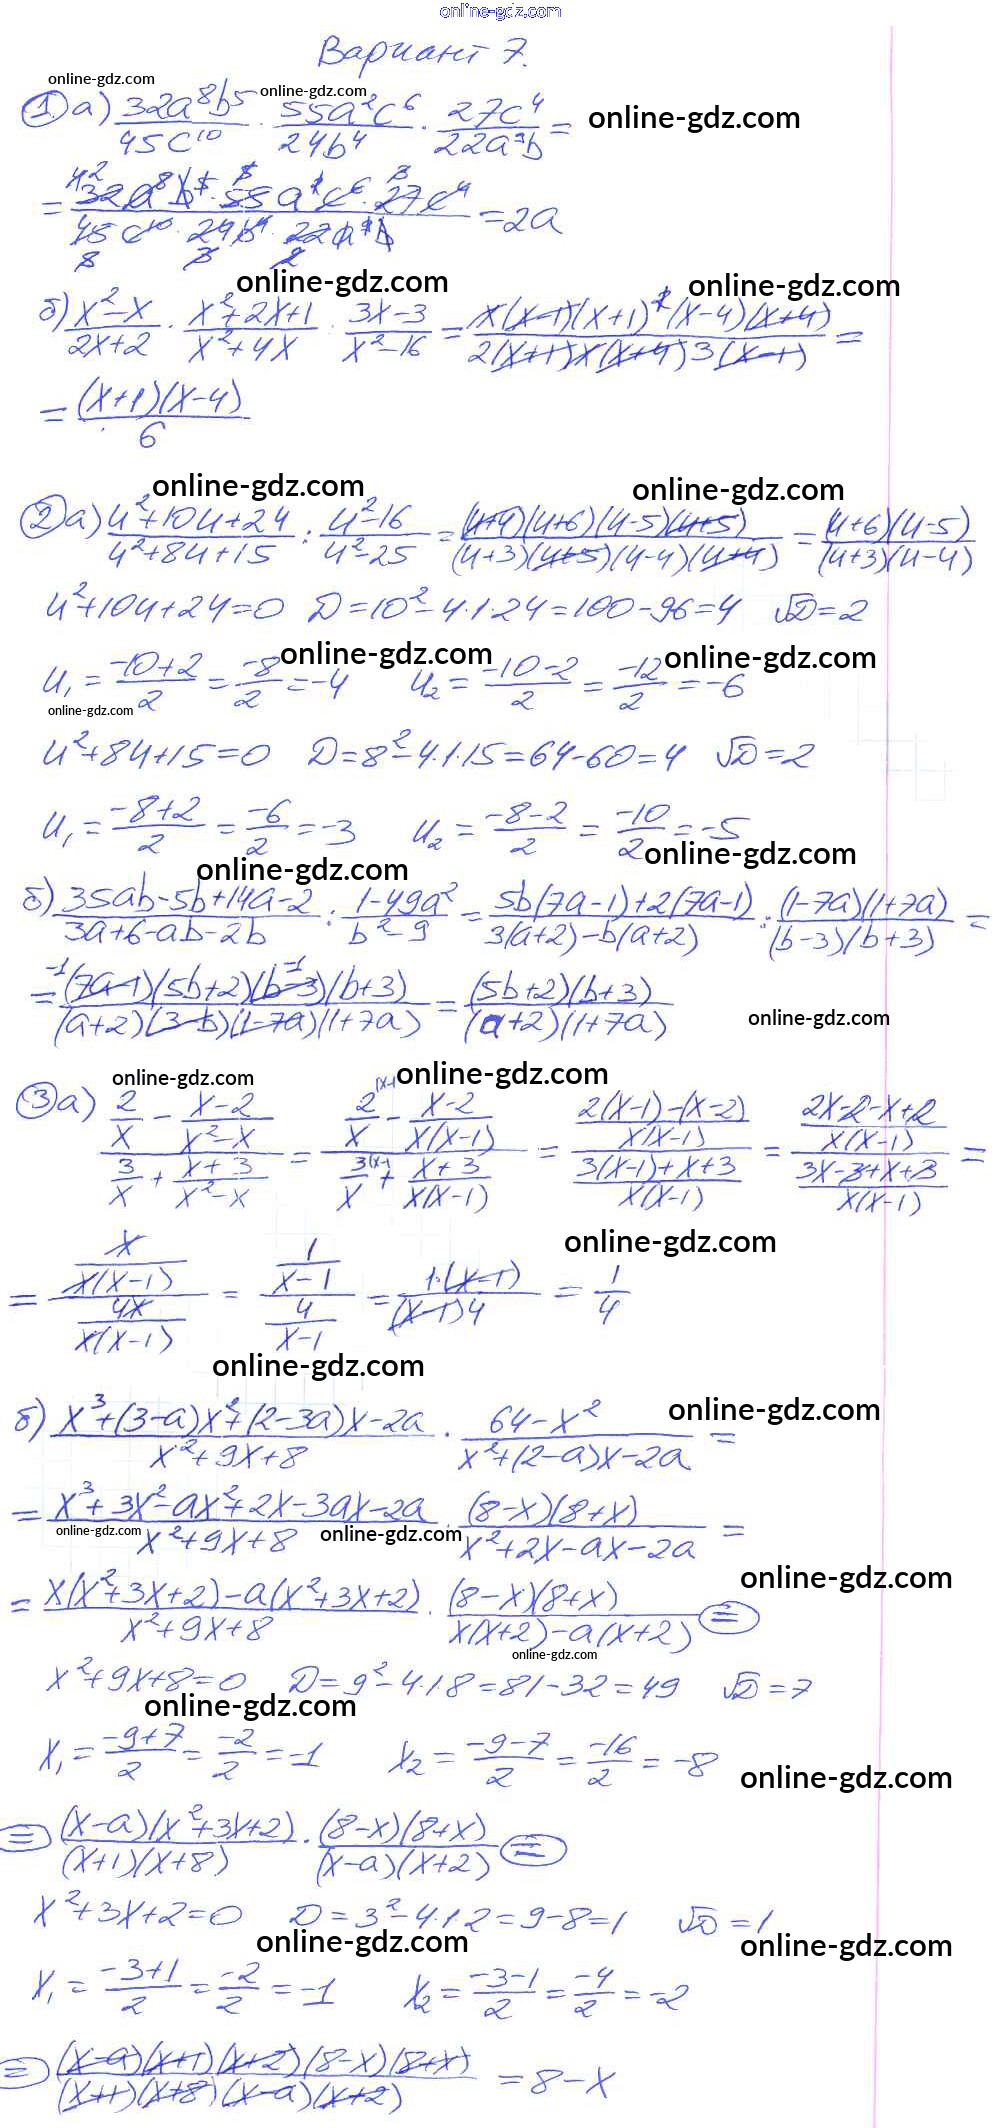 online-gdz.com
Вариант 7.
online-gdz.com
online-gdz.com
① а) 32a⁸b⁵/45c¹⁰ · 55a²c⁶/24b⁴ · 27c⁴/22a⁹b =
online-gdz.com
= 32a⁸b⁵·55a²c⁶·27c⁴/45c¹⁰·24b⁴·22a⁹b = 2a
online-gdz.com
online-gdz.com
б) x²-x/2x+2 · x²+2x+1/x²+4x : 3x-3/x²-16 = x(x-1)(x+1)²(x-4)(x+4)/2(x+1)x(x+4)3(x-1) =
= (x+1)(x-4)/6
online-gdz.com
online-gdz.com
② а) u²+10u+24/u²+8u+15 : u²-16/u²-25 = (u+4)(u+6)(u-5)(u+5)/(u+3)(u+5)(u-4)(u+4) = (u+6)(u-5)/(u+3)(u-4)
u²+10u+24=0 D=10²-4·1·24=100-96=4 √D=2
online-gdz.com
online-gdz.com
u₁ = -10+2/2 = -8/2 = -4 u₂ = -10-2/2 = -12/2 = -6
online-gdz.com
u²+8u+15=0 D=8²-4·1·15=64-60=4 √D=2
u₁ = -8+2/2 = -6/2 = -3 u₂ = -8-2/2 = -10/2 = -5
online-gdz.com
online-gdz.com
б) 35ab-5b+14a-2/3a+6-ab-2b : 1-49a²/b²-9 = 5b(7a-1)+2(7a-1)/3(a+2)-b(a+2) : (1-7a)(1+7a)/(b-3)(b+3) =
= -1 (7a-1)(5b+2)(b-3) -1 (b+3)/(a+2)(3-b)(1-7a)(1+7a) = (5b+2)(b+3)/(a+2)(1+7a)
online-gdz.com
online-gdz.com
online-gdz.com
③ а) 2/x - x-2/x²-x / 3/x + x+3/x²-x = 2/x - x-2/x(x-1) / 3/x + x+3/x(x-1) = 2(x-1)-(x-2)/x(x-1) / 3(x-1)+x+3/x(x-1) = 2x-2-x+2/x(x-1) / 3x-3+x+3/x(x-1) =
online-gdz.com
= x/x(x-1) / 4x/x(x-1) = 1/x-1 / 4/x-1 = 1·(x-1)/(x-1)4 = 1/4
online-gdz.com
online-gdz.com
б) x³+(3-a)x²+(2-3a)x-2a/x²+9x+8 · 64-x²/x²+(2-a)x-2a =
= x³+3x²-ax²+2x-3ax-2a/x²+9x+8 · (8-x)(8+x)/x²+2x-ax-2a =
online-gdz.com
online-gdz.com
online-gdz.com
= x(x²+3x+2)-a(x²+3x+2)/x²+9x+8 · (8-x)(8+x)/x(x+2)-a(x+2) =
online-gdz.com
x²+9x+8=0 D=9²-4·1·8=81-32=49 √D=7
online-gdz.com
x₁ = -9+7/2 = -2/2 = -1 x₂ = -9-7/2 = -16/2 = -8
online-gdz.com
= (x-a)(x²+3x+2)/(x+1)(x+8) · (8-x)(8+x)/(x-a)(x+2) =
x²+3x+2=0 D=3²-4·1·2=9-8=1 √D=1
online-gdz.com
online-gdz.com
x₁ = -3+1/2 = -2/2 = -1 x₂ = -3-1/2 = -4/2 = -2
= (x-a)(x+1)(x+2)(8-x)(8+x)/(x+1)(x+8)(x-a)(x+2) = 8-x